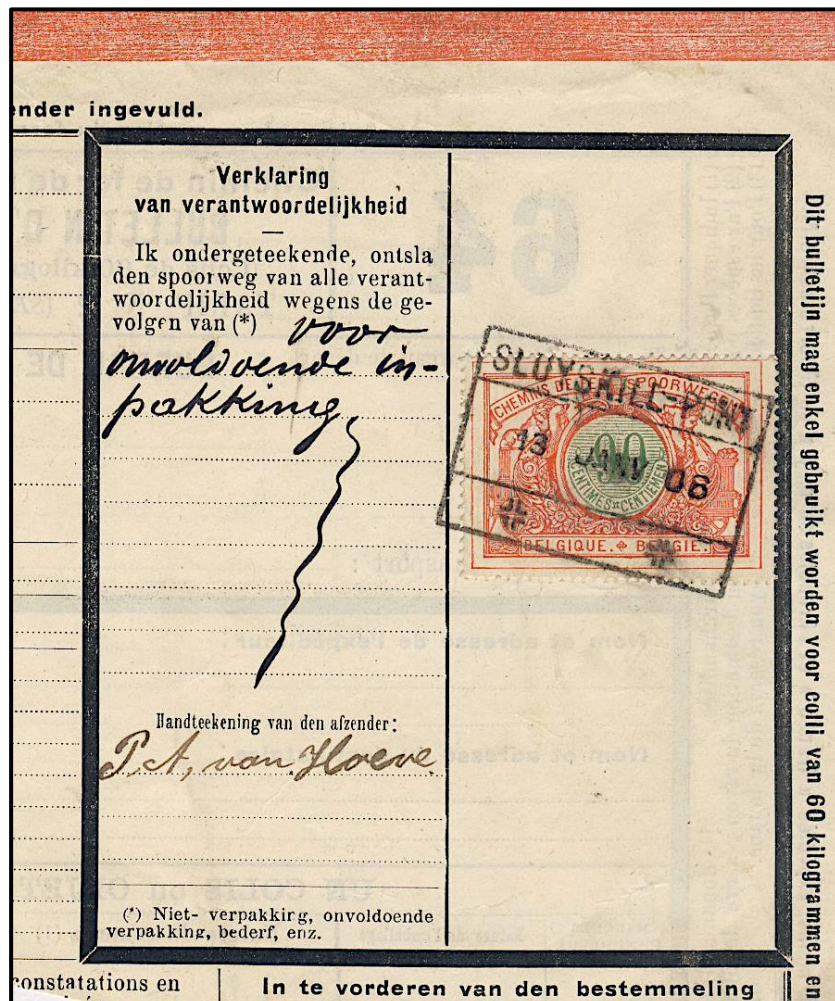 ender ingevuld.
Verklaring
van verantwoordelijkheid
Ik ondergeteekende, ontsla
den spoorweg van alle verant-
woordelijkheid wegens de ge-
volgen van (*) voor
onvoldoende in-
pakking
Handteekening van den afzender:
P. A. van Hoeve
(*) Niet- verpakking, onvoldoende
verpakking, bederf, enz.
SLUYSKILL-PONT
13 JANV 06
CHEMINS DE FER SPOORWEGEN
90
CENTIMES CENTIEMEN
BELGIQUE. BELGIE.
Dit bulletijn mag enkel gebruikt worden voor colli van 60 kilogrammen en
constatations en
In te vorderen van den bestemmeling
64
Nom et adresse de l'expéditeur
Nom et adresse
UN COLIS ou